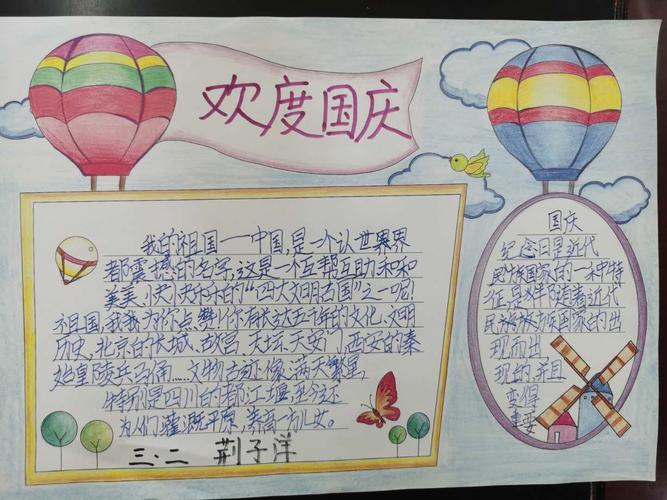 欢度国庆
我的祖国——中国,是一个认世界界
都震撼的名字,这是一个互帮互助、和和
美美、快快乐乐的“四大文明古国”之一呢!
祖国,我我为你点赞!你有长达五千年的文化、文明
历史,北京的长城、故宫、天坛、天安门,西安的秦
始皇陵兵马俑……文物古迹像满天繁星,
特别是四川的都江堰,至今还
为人们灌溉平原,养育一方儿女。
三·二 荆子洋
国庆
纪念日是近代
民族国家的一种特
征,是伴随着近代
民族国家的出
现而出
现的,并且
变得
重要